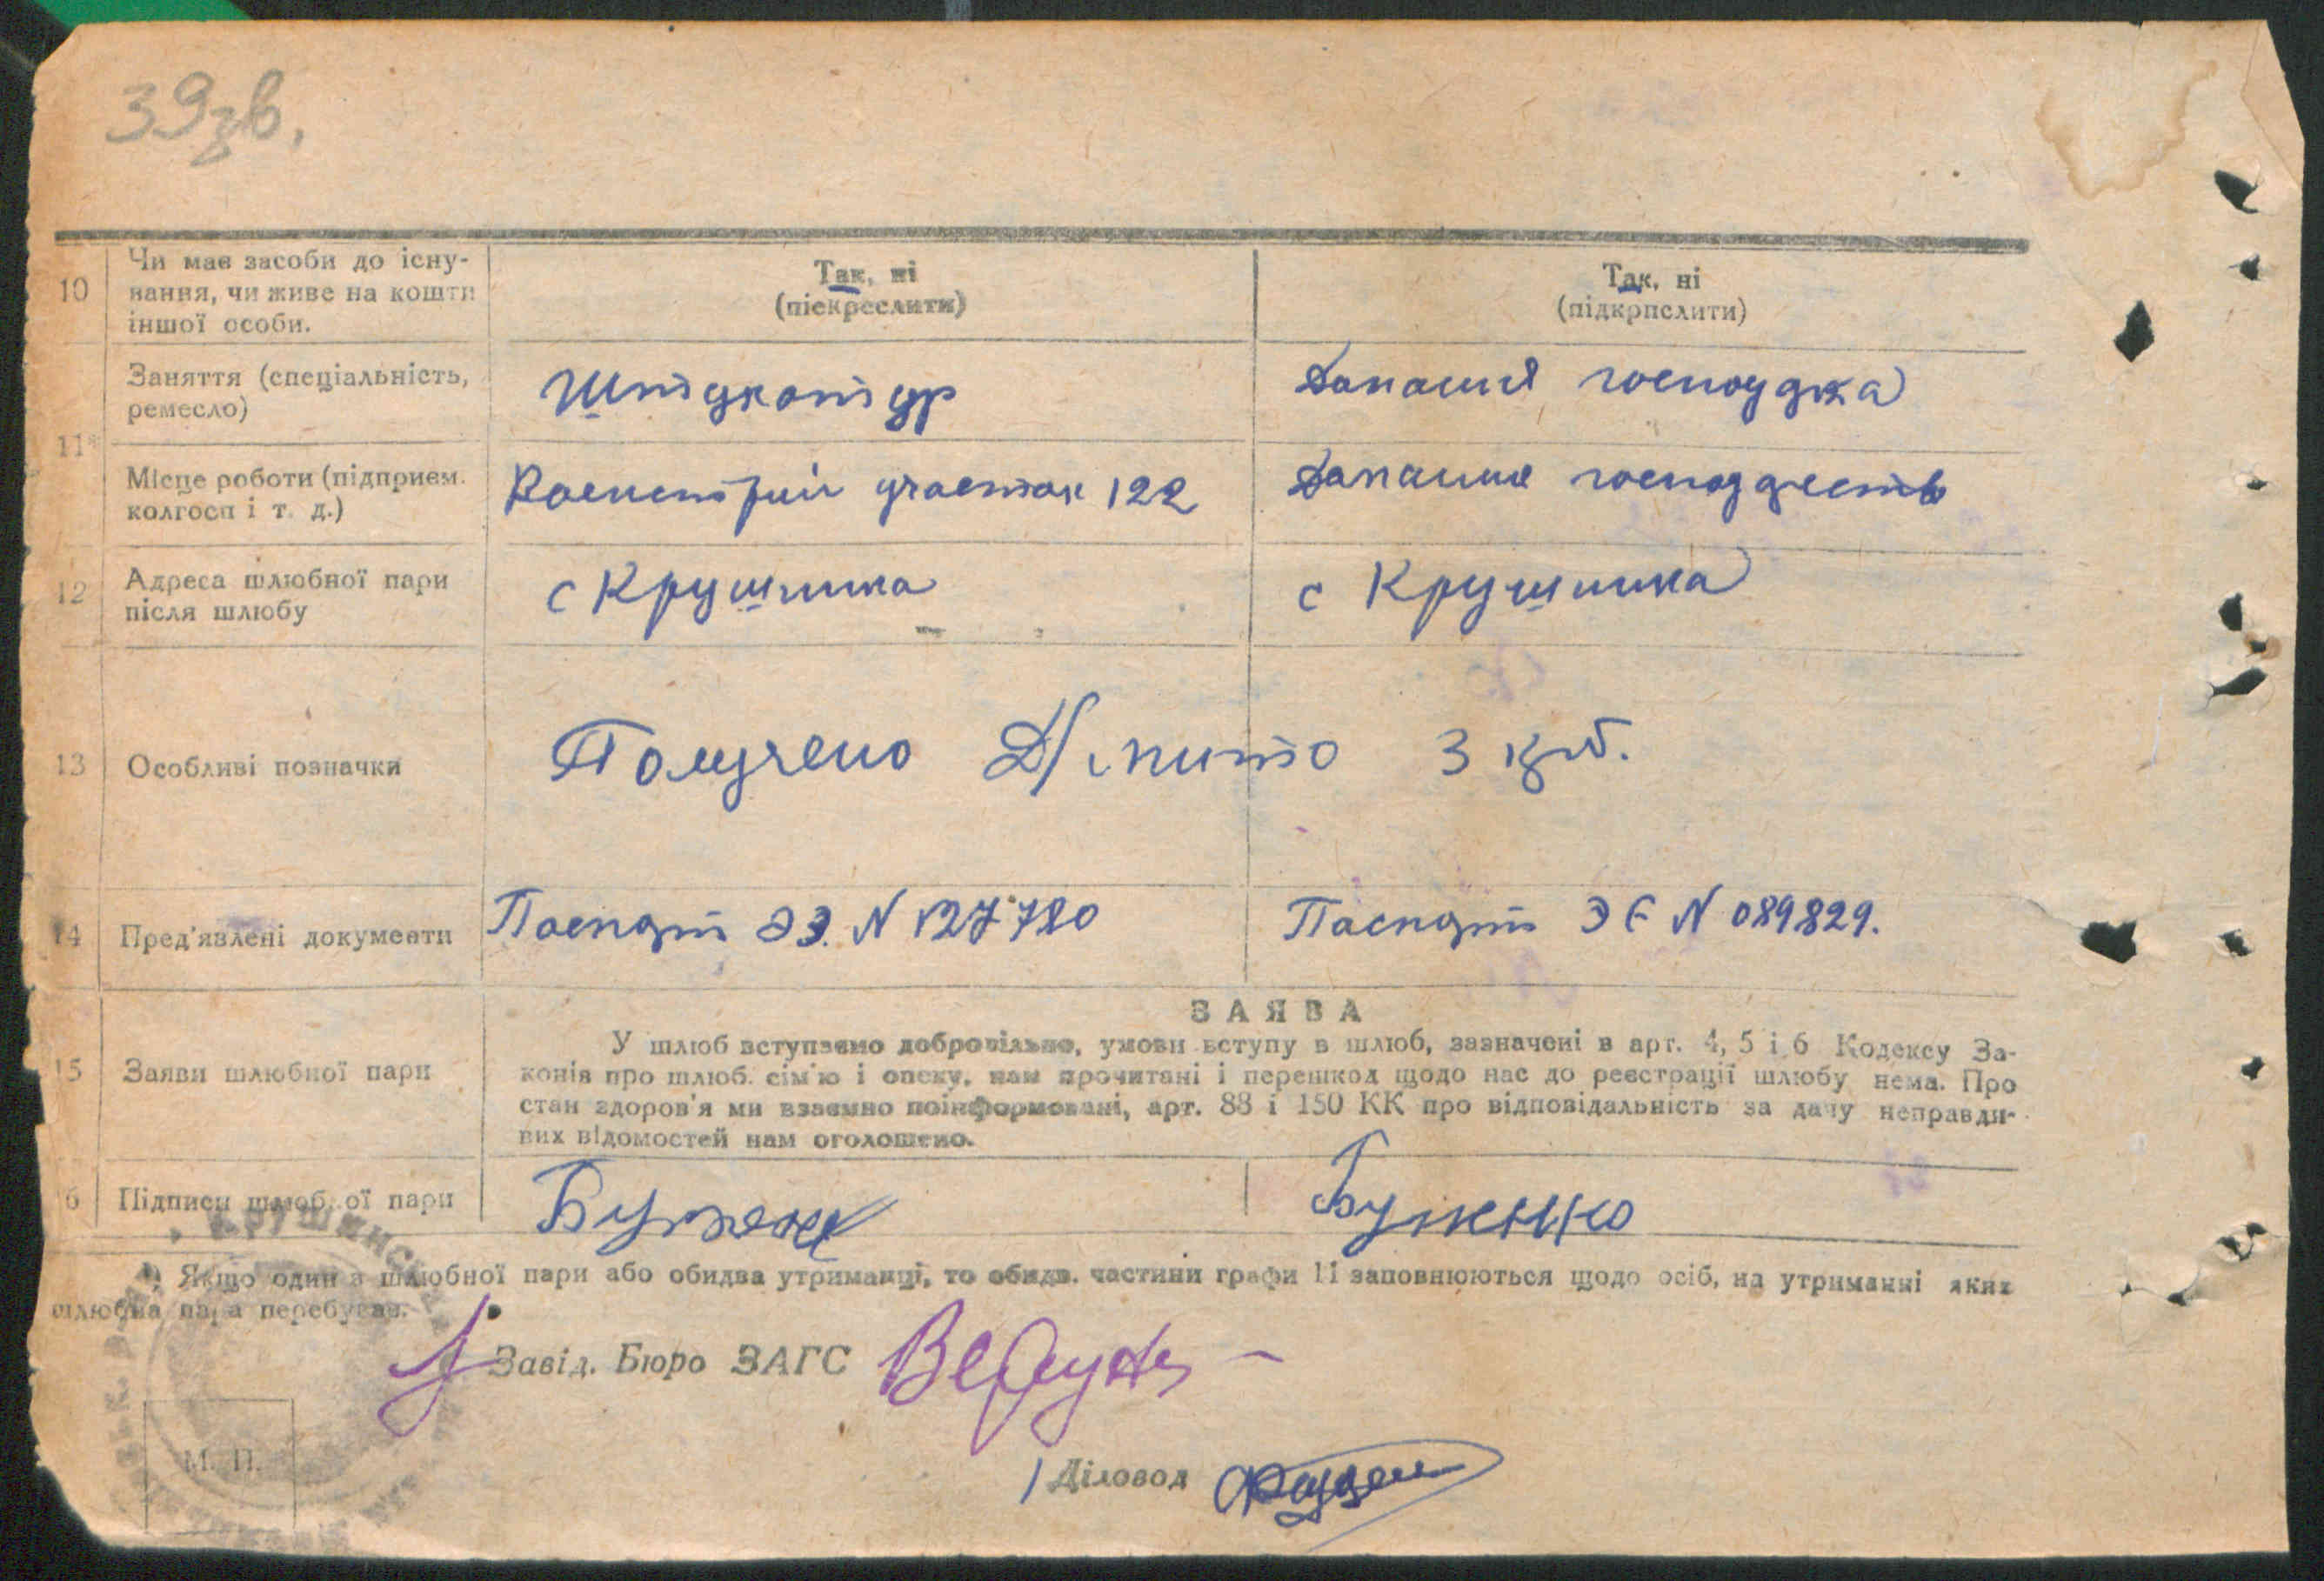 39зв.
10
Чи має засоби до існу-
вання, чи живе на кошти
іншої особи.
Так, ні
(піекреслити)
Так, ні
(підкрпслити)
11*
Заняття (спеціальність,
ремесло)
Штукатур
Домашня господжа
Місце роботи (підприєм.
колгосп і т. д.)
участок 122
Домашнє
12
Адреса шлюбної пари
після шлюбу
с Крушинка
с Крушинка
13
Особливі позначки
Получено 3 крб.
14
Пред'явлені документи
Паспорт ЭЭ. N 127780
Паспорт ЭЄ N 089829.
ЗАЯВА
15
Заяви шлюбної пари
У шлюб вступаємо добровільно, умови вступу в шлюб, зазначені в арт. 4, 5 і 6 Кодексу За-
конів про шлюб. сім'ю і опеку, нам прочитані і перешкод щодо нас до реєстрації шлюбу нема. Про
стан здоров'я ми взаємно поінформовані, арт. 88 і 150 КК про відповідальність за дачу неправди-
вих відомостей нам оголошено.
6
Підписи шлюб ої пари
Якщо один з шлюбної пари або обидва утриманці, то обидв. частини графи 11 заповнюються щодо осіб, на утриманні яких
шлюбна пара перебуває.
Завід. Бюро ЗАГС
М. П.
Діловод